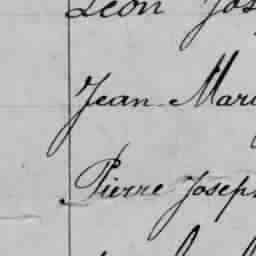 Léon Jos
Jean Mari
Pierre Joseph